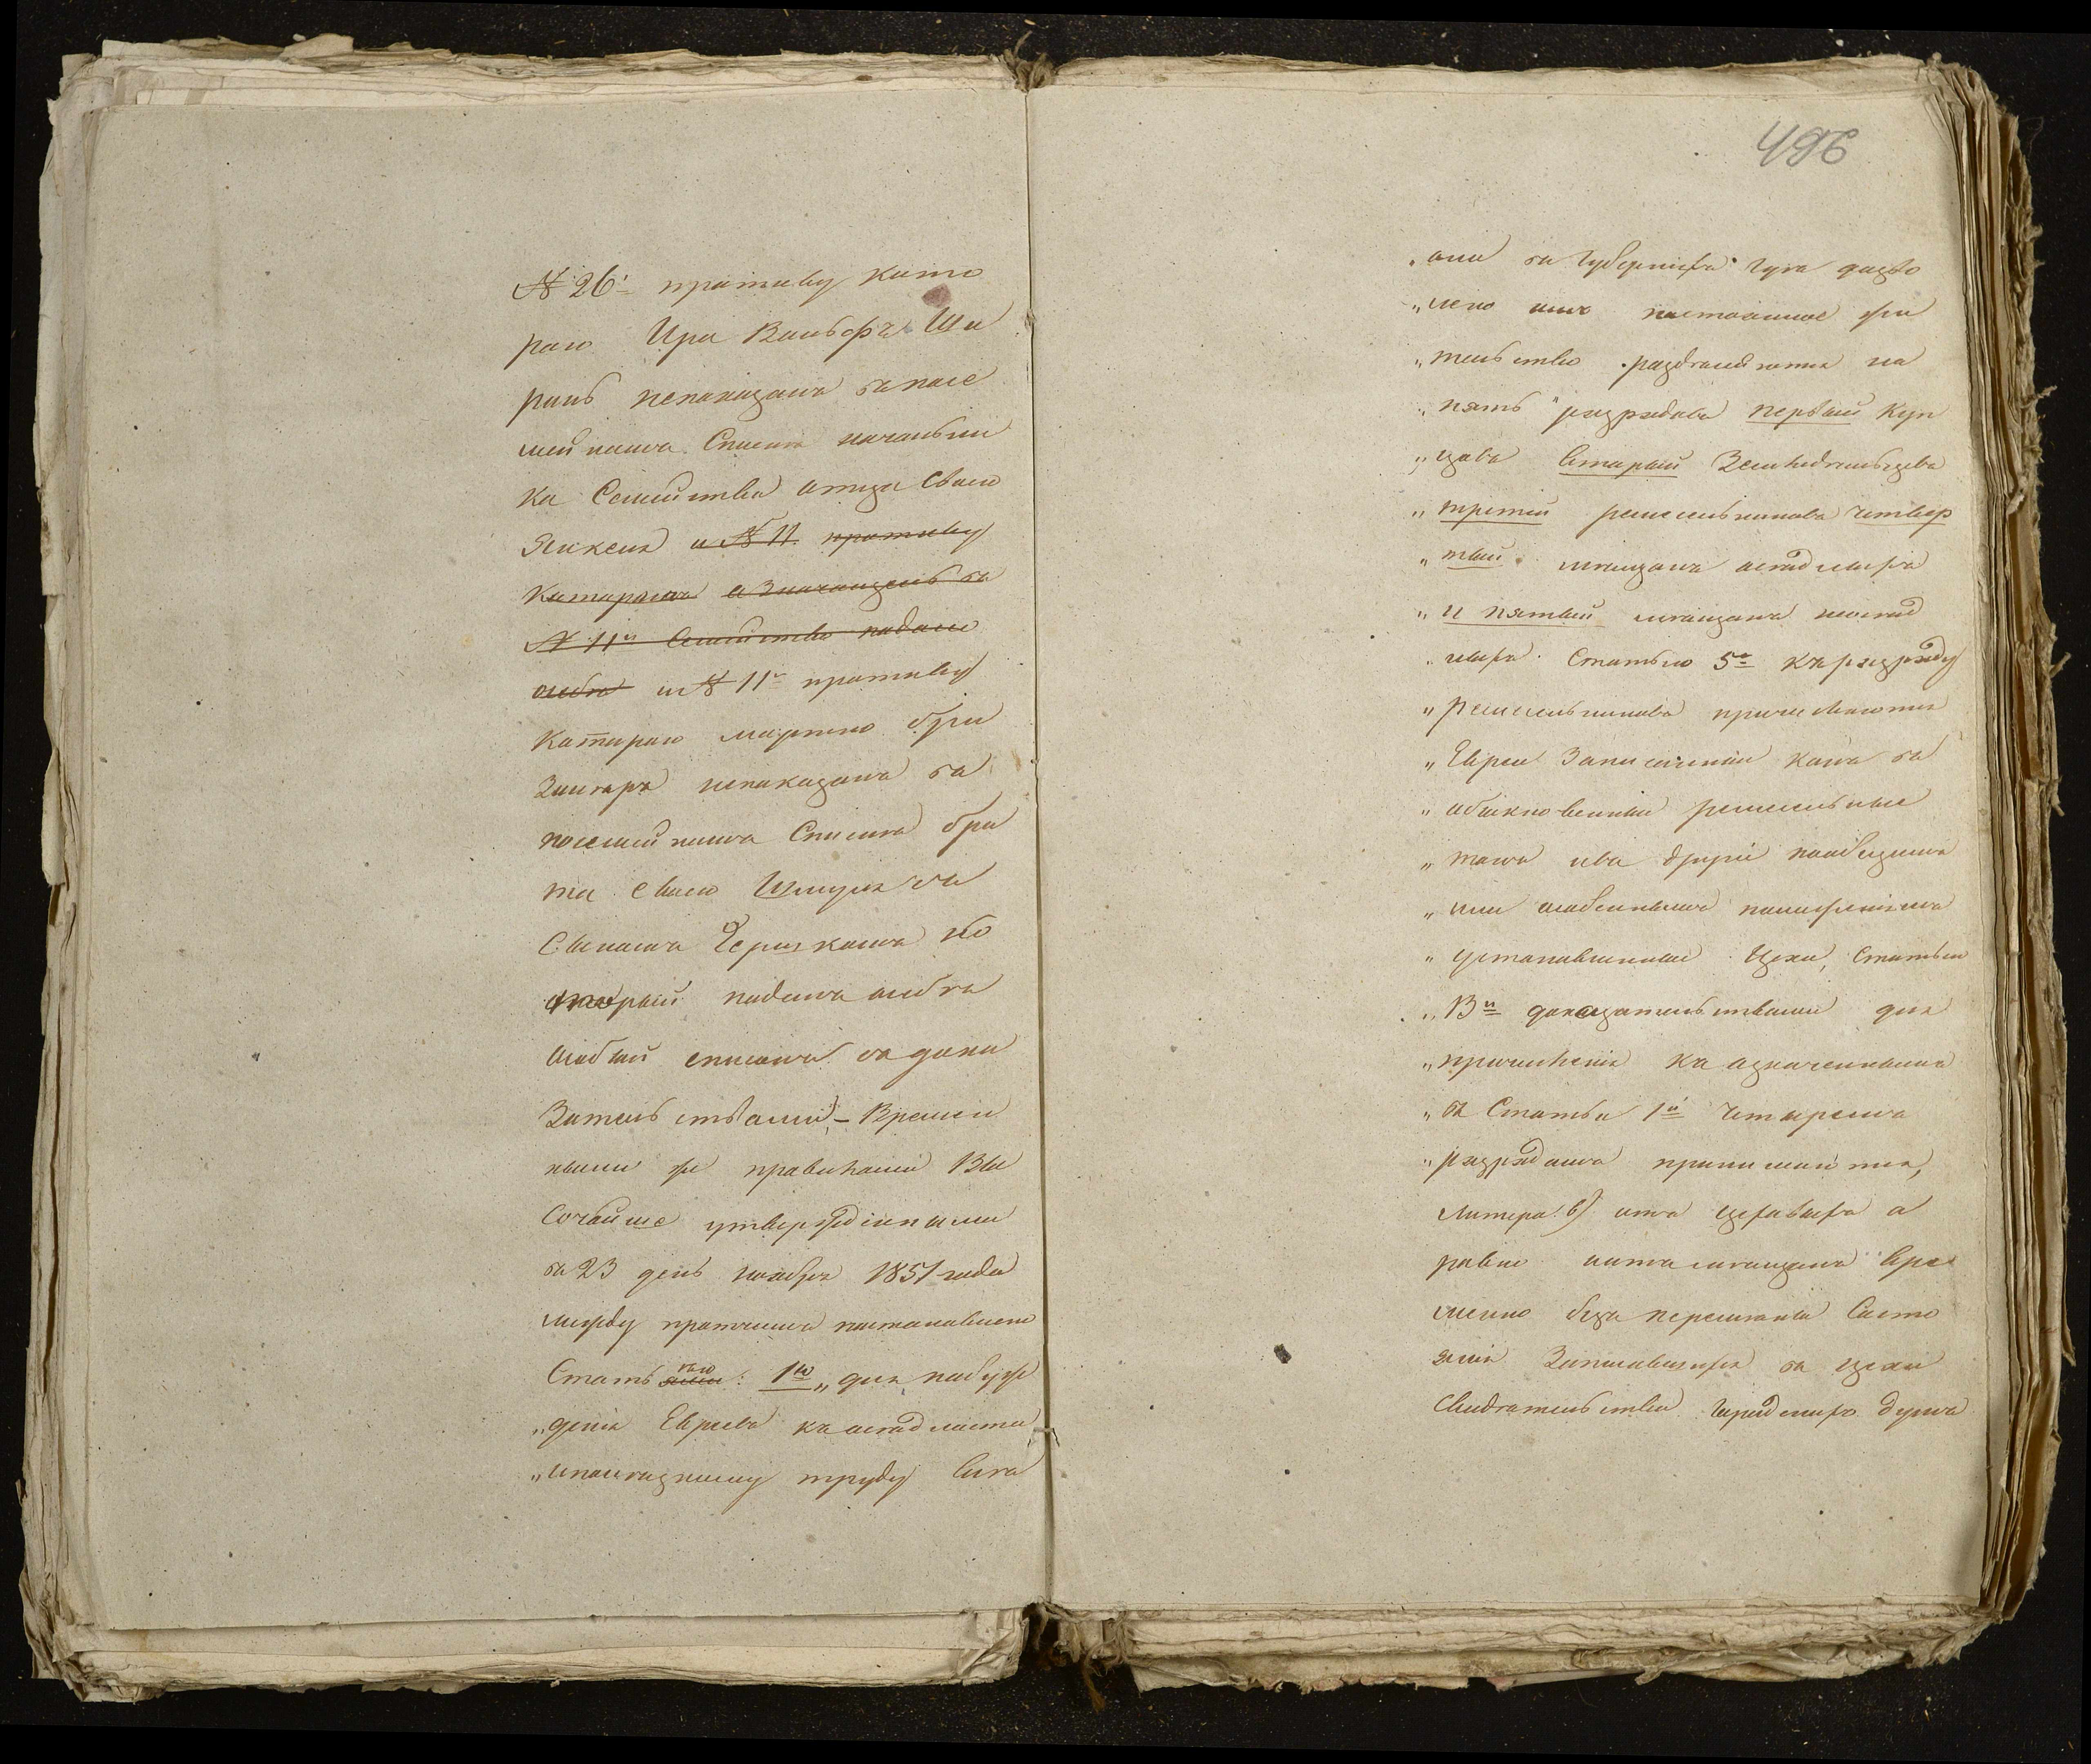 № 26й противу кото
раго Ира Вольфъ Ши
раль непоказанъ въ посе
мейномъ спискѣ начальни
ка Семейства отцы своего
и № 11. противу
котораго а значащей въ
№ 11й Семейство подано
особо и № 11й противу
котораго мартко бри
непоказанъ въ
посемейномъ Спискѣ бра
та своего Шмуля съ
сыномъ Берикомъ ко
торый поданъ особо
особый списокъ съ дока
зательствами, – Времен
ными же правилами Вы
сочайше утвержденными
въ 23 день ноября 1851 года
между прочимъ постановлено
Статьею: 1ю „для побуж
„денія Евреевъ къ осѣдлости
„и полезному труду всѣ
496
„они въ Губерніяхъ гдѣ дозво
„лено имъ постоянное жи
„тельство раздѣляются на
„пять разрядовъ первый Куп
„цовъ вторый Земледѣльцевъ
„третій ремесленниковъ четвер
„тый мѣщанъ осѣдлыхъ
„и пятый мѣщанъ неосѣд
„лыхъ. Статьею 5ю къ разряду
„Ремесленниковъ причисляются
„Евреи Записанные какъ въ
„обыкновенные ремесленные
„такъ и въ другіе по общимъ
„или особеннымъ положеніямъ
„установленные Цехи, Статьи
„13й доказательствами для
„причисленія къ означеннымъ
„въ Статьи 1й четыремъ
„разрядамъ принимаются,
Литера в) отъ цеховыхъ а
равно и отъ мѣщанъ вре
менно безъ перемѣны состо
янія Записавшихся въ цехи
Свидѣтельства Городскихъ думъ